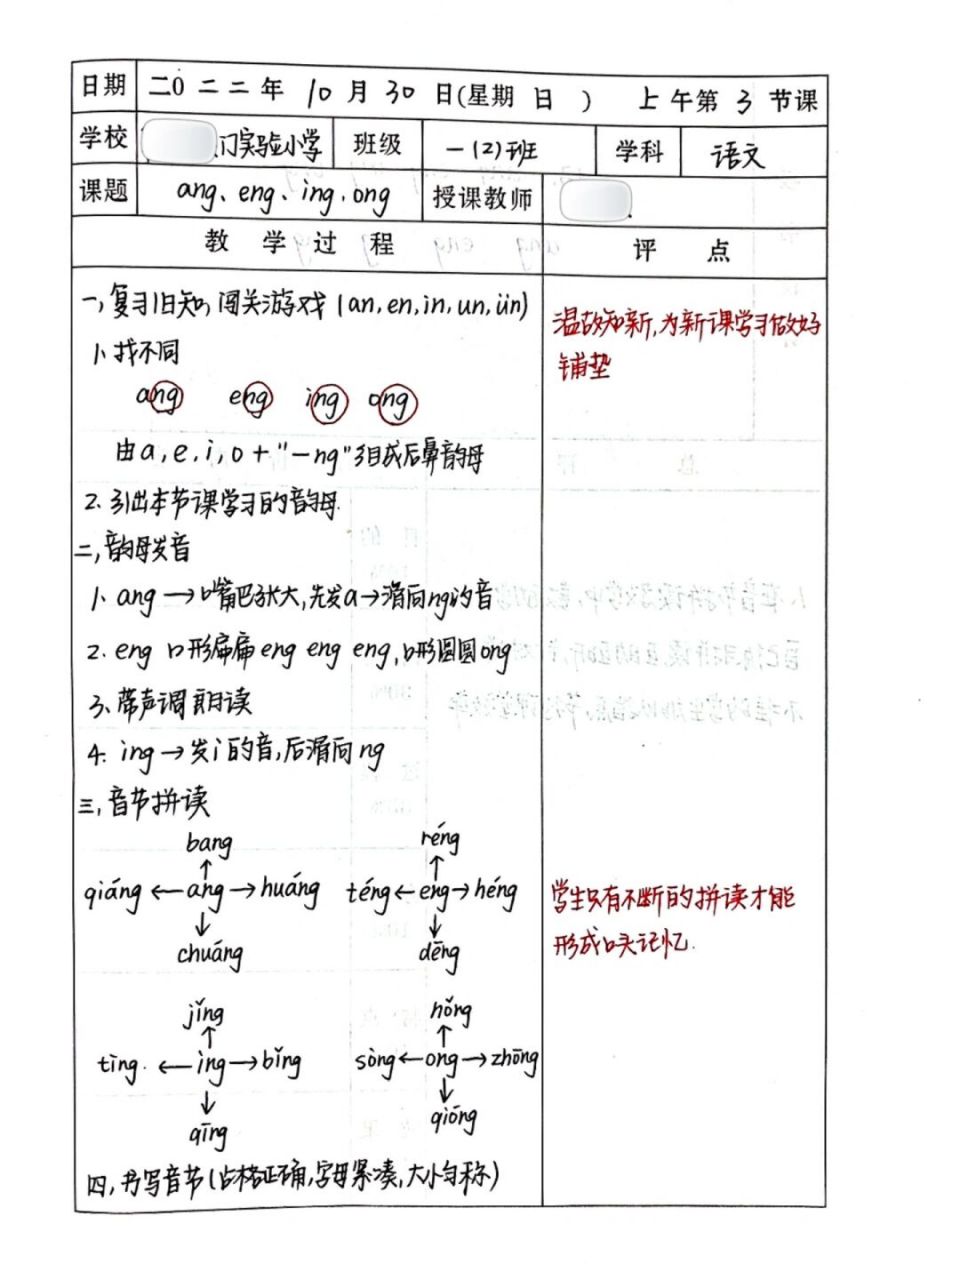 日期 二〇二二年 10月30日(星期 日 ) 上午第 3 节课
学校 门实验小学 班级 一(2)班 学科 语文
课题 ang、eng、ing、ong 授课教师
教 学 过 程 评 点
一,复习旧知,闯关游戏(an,en,in,un,ün)
温故知新,为新课学习做好
铺垫
1.找不同
ang eng ing ong
由a,e,i,o+"-ng"组成后鼻韵母
2.引出本节课学习的韵母.
二,韵母发音
1. ang→嘴巴张大,先发a→滑向ng的音
2. eng 口形扁扁eng eng eng,口形圆圆ong
3、带声调朗读
4. ing→发i的音,后滑向ng
三,音节拼读
bang réng
qiáng←ang→huáng téng←eng→héng
chuáng dēng
学生只有不断的拼读才能
形成口头记忆.
jǐng hǒng
tīng.←ing→bǐng sòng←ong→zhōng
qīng qióng
四,书写音节(占格正确,字母紧凑,大小匀称)